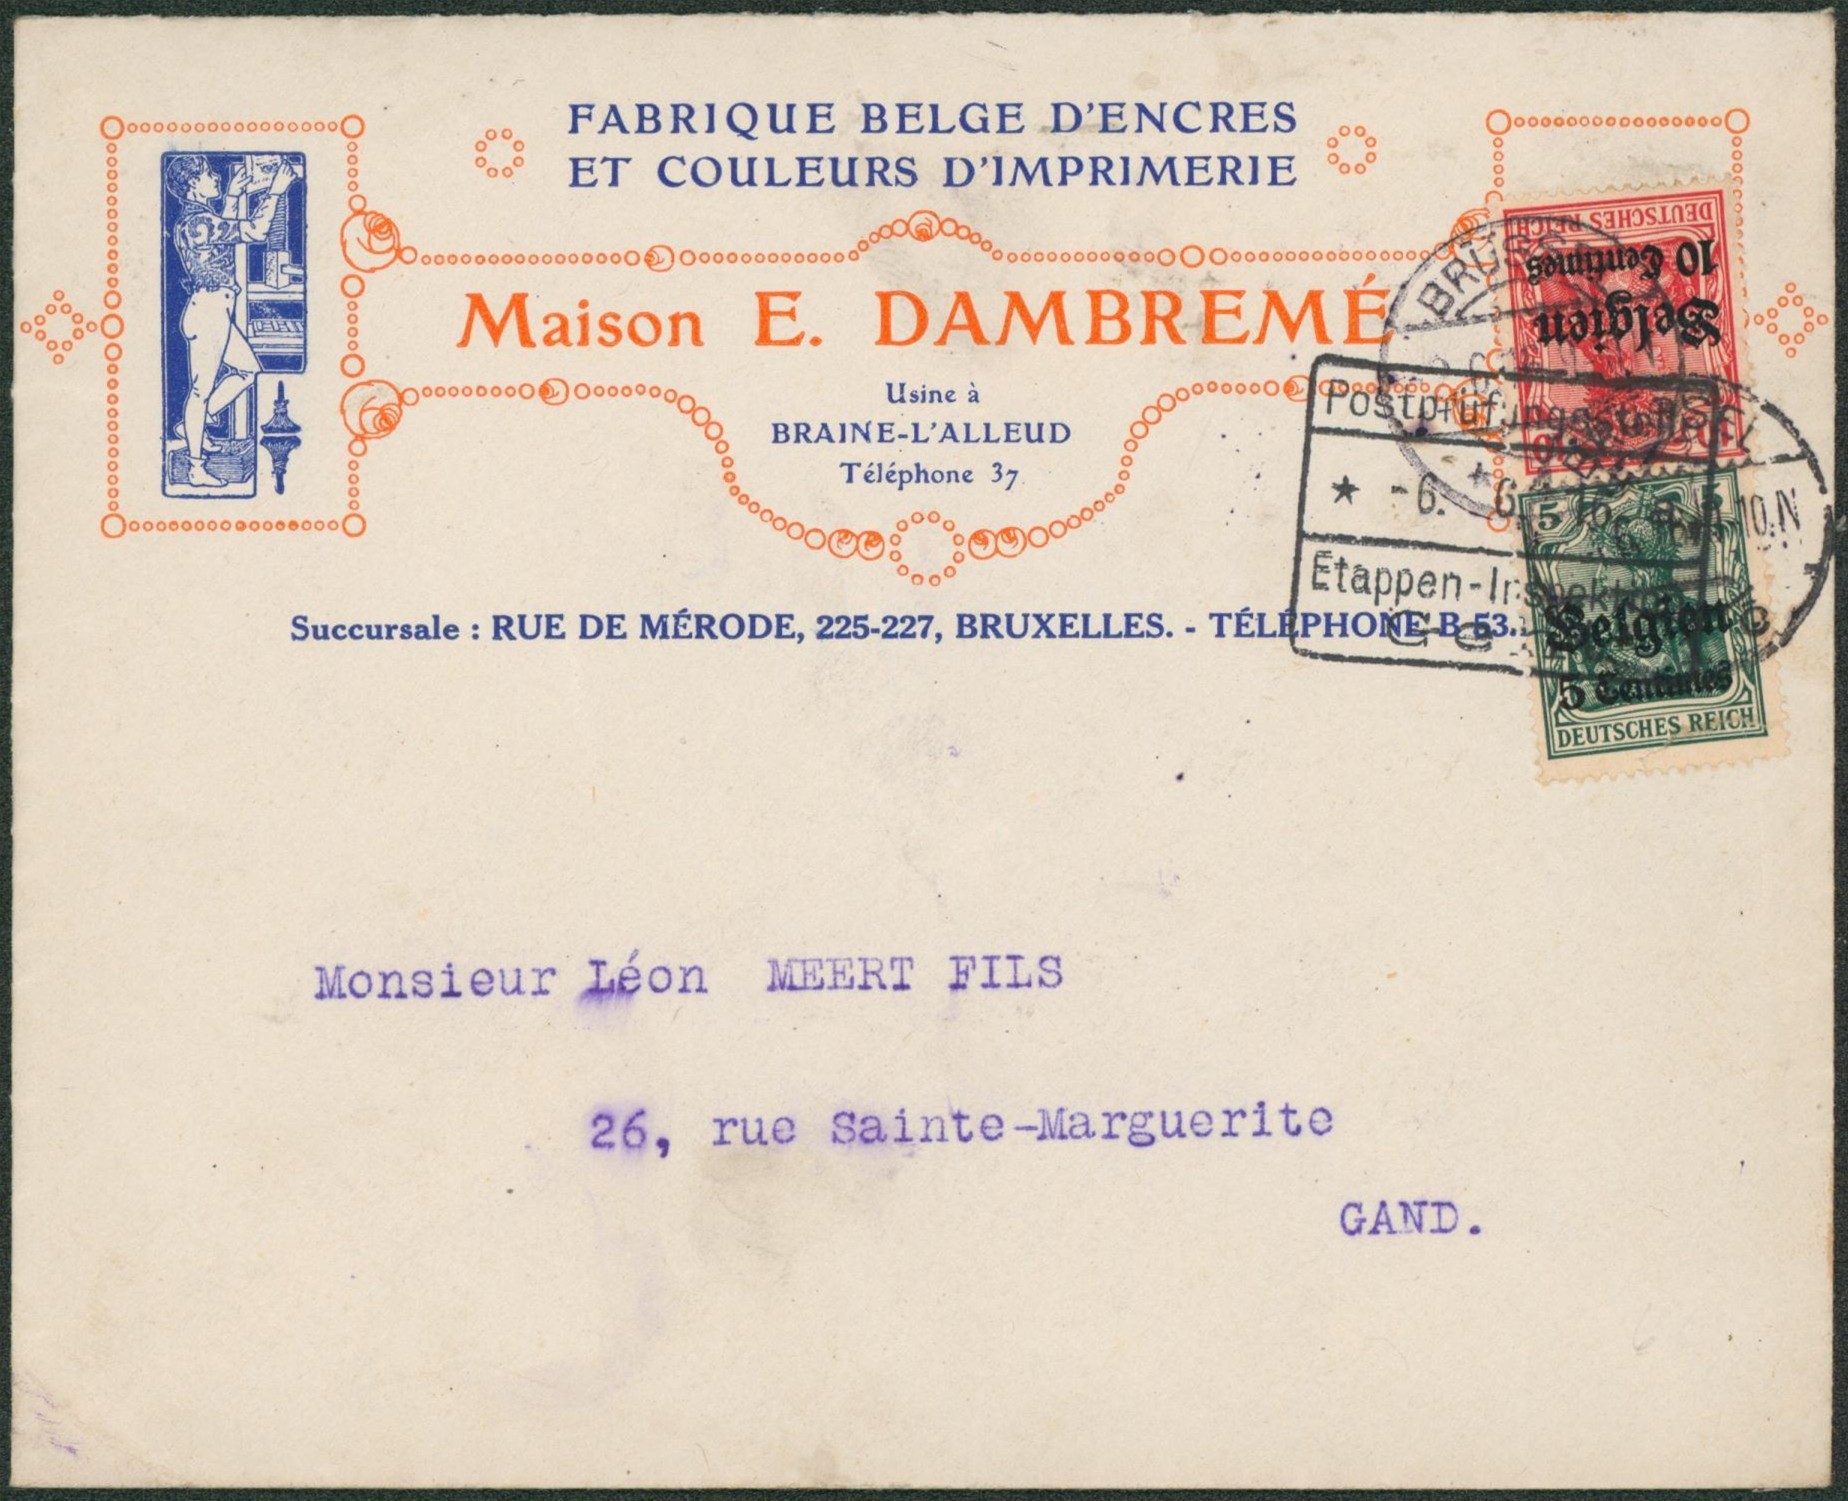 FABRIQUE BELGE D'ENCRES
ET COULEURS D'IMPRIMERIE
Maison E. DAMBREMÉ
Usine à
BRAINE-L'ALLEUD
Téléphone 37
Succursale : RUE DE MÉRODE, 225-227, BRUXELLES. - TÉLÉPHONE B 53.
DEUTSCHES REICH
10 Centimes
Belgien
BRÜSSEL
Postprüfungsstelle
★ -6. 6.
10.N
Etappen-Inspektion
5
Belgien
5 Centimes
DEUTSCHES REICH
Monsieur Léon MEERT FILS
26, rue Sainte-Marguerite
GAND.